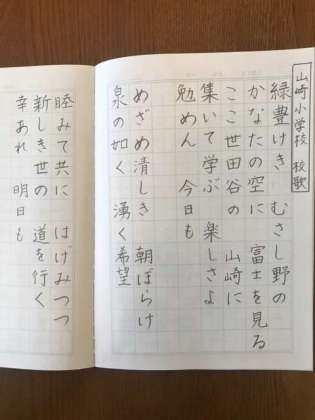 山崎小学校 校歌
緑豊けき むさし野の
かなたの空に 富士を見る
ここ世田谷の 山崎に
集いて学ぶ 楽しさよ
勉めん 今日も
めざめ清しき 朝ぼらけ
泉の如く 湧く希望
睦みて共に はげみつつ
新しき世の 道を行く
幸あれ 明日も